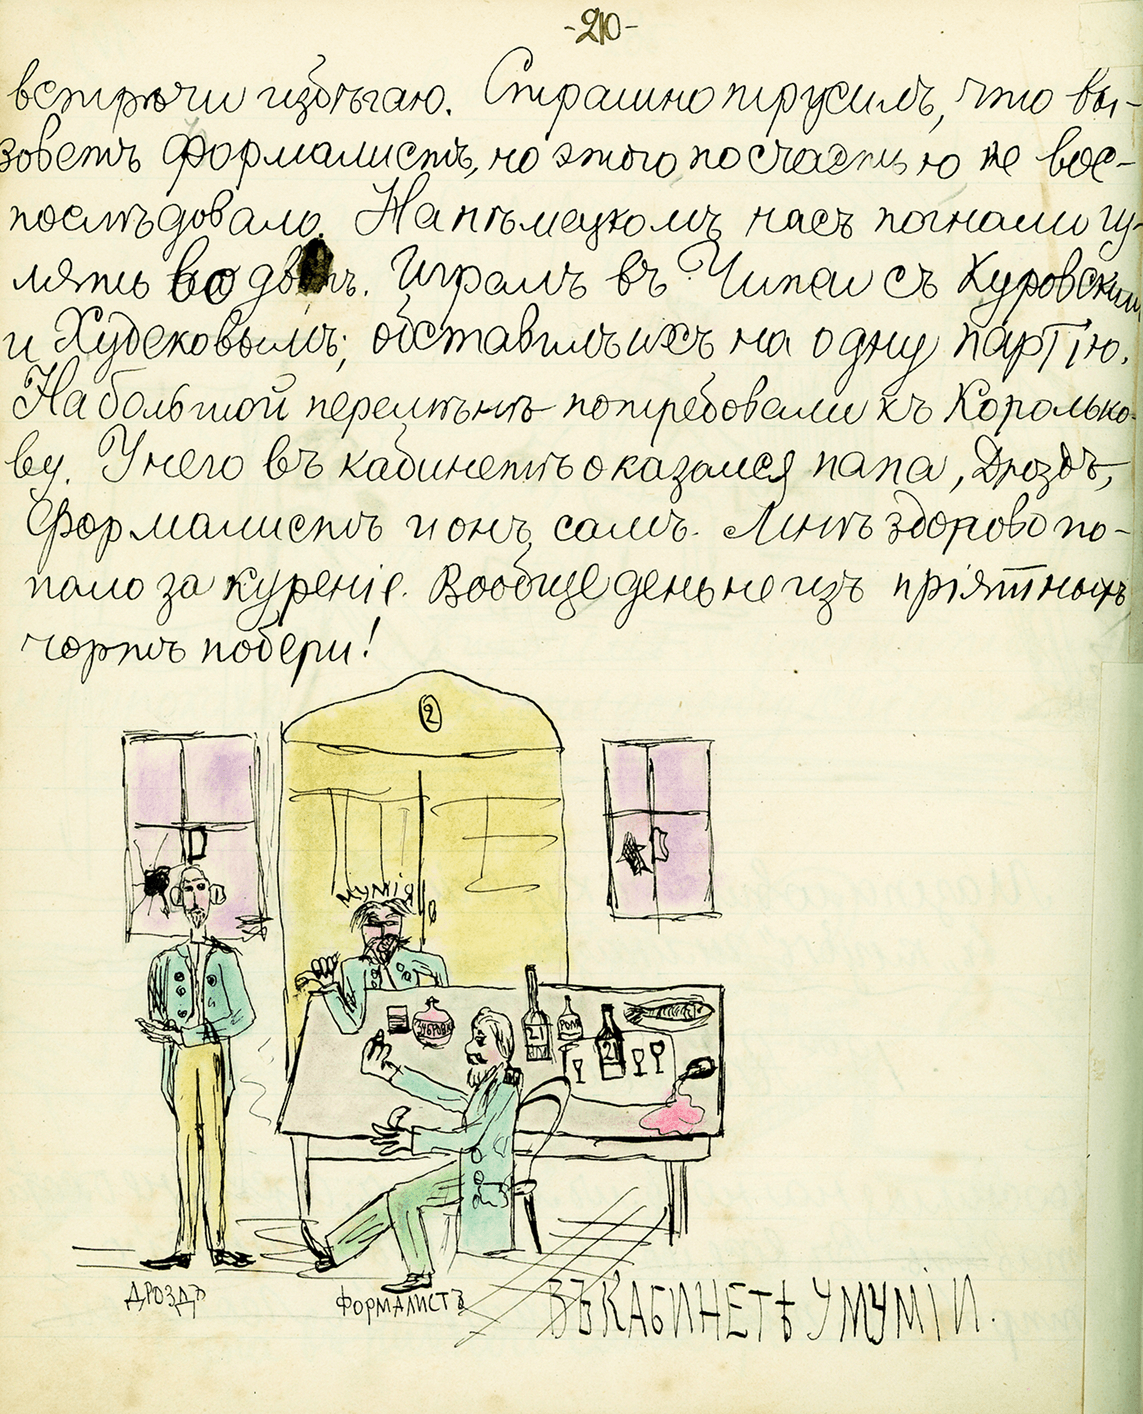 -210-
встрѣчи избѣгаю. Страшно трусилъ, что вы-
зоветъ Формалистъ, но этого по счастью не вос-
послѣдовало. На нѣмецкомъ насъ погнали гу-
лять во дворъ. Игралъ въ Чижи съ Куровскимъ
и Худековымъ; обставилъ ихъ на одну партію.
На большой перемѣнѣ потребовали къ Королько-
ву. У него въ кабинетѣ оказался папа, Дроздъ,
Формалистъ и онъ самъ. Мнѣ здорово по-
пало за куреніе. Вообще день не изъ пріятныхъ
чортъ побери!
2
МУМІЯ
ЗУБРОВКА
21
РОМЪ
21
ДРОЗДЪ
ФОРМАЛИСТЪ
ВЪ КАБИНЕТѢ У МУМІИ.